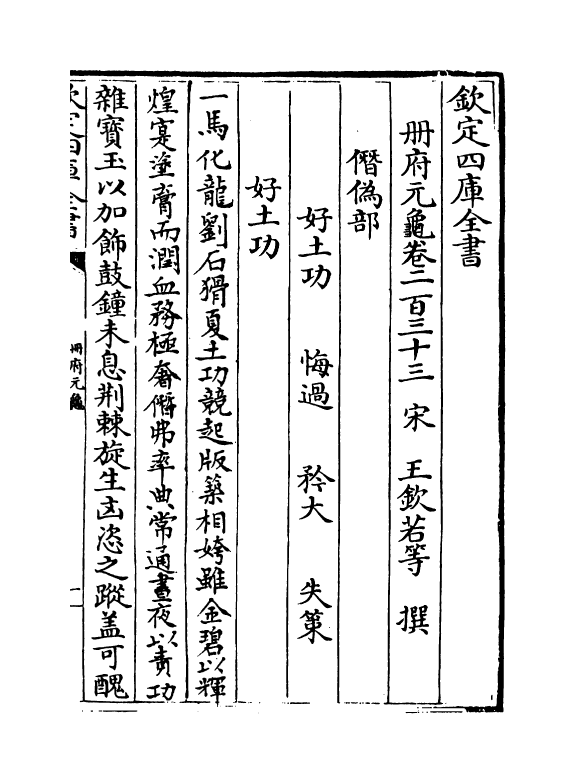 欽定四庫全書
冊府元龜卷二百三十三 宋 王欽若等 撰
僭偽部
好土功 悔過 矜大 失策
好土功
一馬化龍劉石猾夏土功競起版築相姱雖金碧以輝
煌寔塗膏而潤血務極奢僭弗率典常通晝夜以責功
雜寶玉以加飾鼓鐘未息荆棘旋生凶恣之蹤盖可醜
欽定四庫全書
冊府元龜
一